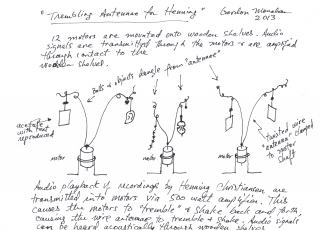 "Trembling Antennae for Henning" Gordon Monahan
2013
12 motors are mounted onto wooden shelves. Audio
signals are transmitted through the motors & are amplified
through contact to the
wooden shelves.
Bolts & objects dangle from "antennae"
acetate
with text
reproduced
"twisted wire
antennae" clamped
to motor
shaft
motor
motor
motor
Audio playback of recordings by Henning Christiansen are
transmitted into motors via 500 watt amplifiers. This
causes the motors to "tremble" & shake back and forth,
causing the wire antennae to tremble & shake. Audio signals
can be heard acoustically through wooden shelves.